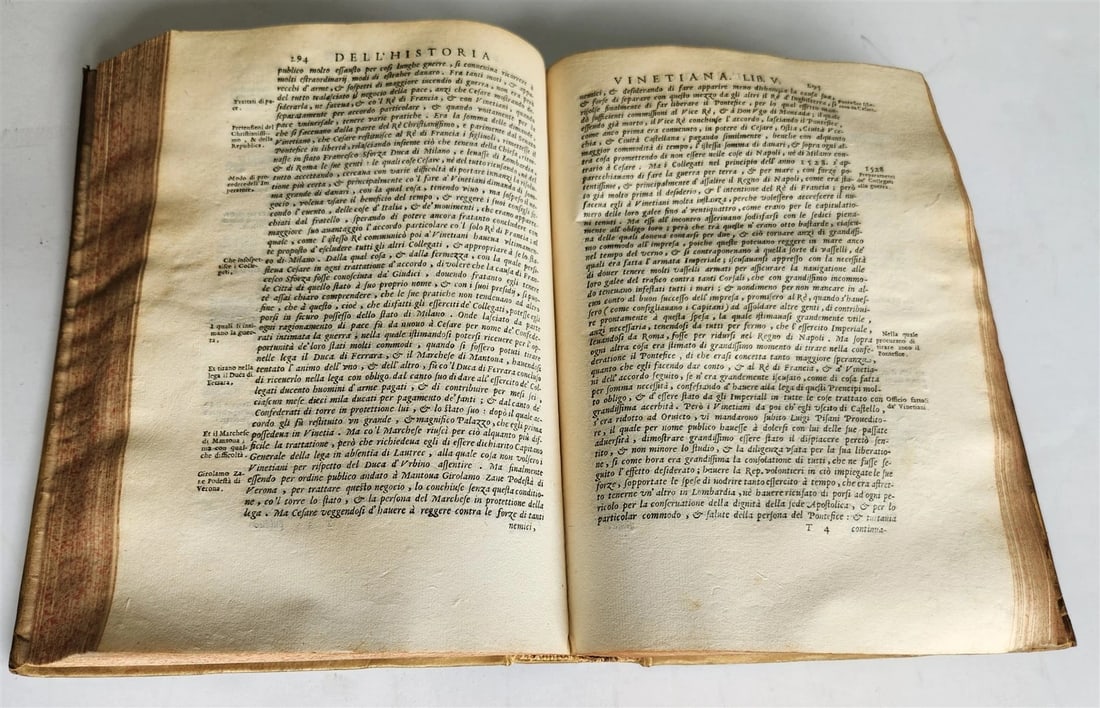 294 DELL'HISTORIA
publico molto essausto per così lunghe guerre, si conveniva ricorrere
molti estraordinarij modi di estraher danaro. Fra tanti moti, &
recchi d'arme, & sospetti di maggiore incendio di guerra, non era però
del tutto tralasciato il negocio della pace, anzi che Cesare mostrando
siderarla, ne faceva, & co'l Rè di Francia, & con Vinetiani, quando
separatamente per accordo particolare, & quando unitamente per
pace universale, tenere varie pratiche. Era la somma delle
che si faceuano dalla parte del Rè Christianissimo, e parimente dal
Vinetiani, che Cesare restituisse al Rè di Francia i figliuoli, rimettesse il
Pontefice in libertà, rilasciando insieme ciò che teneua della Chiesa;
nasse in stato Francesco Sforza Duca di Milano, e leuasse di Lombardia,
& di Roma le sue genti: le quali cose Cesare, nè del tutto ricusando, nè del
tutto accettando, cercaua con varie difficoltà di portare innanzi la
tione più certa, & principalmente co'l fare à Vinetiani dimanda di
ma grande di danari, con la qual cosa, tenendo viuo, ma sospeso il ne-
gocio, voleua usare il beneficio del tempo, & reggere i suoi consigli se-
condo l'euento, delle cose d'Italia, & de' monimenti, che erano appare-
chiati dal fratello, sperando di potere ancora fratanto concludere con
maggiore suo auantaggio l'accordo particolare co'l solo Rè di Francia; al
quale, come l'istesso Rè communicò poi à Vinetiani haueua vltimamen-
te proposto d'escludere tutti gli altri Collegati, & appropriare à se lo sta-
to di Milano. Dalla qual cosa, & dalla fermezza, con la quale persi-
steua Cesare in ogni trattatione d'accordo, di volere, che la causa di Fran-
cesco Sforza fosse conosciuta da' Giudici, douendo fratanto egli tenere
le Città di quello stato à suo proprio nome, & con i suoi presidij, si puo-
tè assai chiaro comprendere, che le sue pratiche non tendeuano ad altro
fine, che à questo, cioè, che disfatti gli esserciti de' Collegati, potesse egli
porsi in sicuro possesso dello stato di Milano. Onde lasciato da parte
ogni ragionamento di pace fù da nuouo à Cesare per nome de' Confede-
rati intimata la guerra; nella quale istimandosi potersi riceuere per l'op-
portunità de' loro stati molti commodi, quando si fossero potuti tirare
nelle lega il Duca di Ferrara, & il Marchese di Mantoua, hauendosi
tentato l'animo dell'vno, & dell'altro, fù co'l Duca di Ferrara concluso
di riceuerlo nella lega con obligo dal canto suo di dare all'essercito de' Col-
legati ducento huomini d'arme pagati, & di contribuire per mesi sei,
ciascun mese dieci mila ducati per pagamento de' fanti; & dal canto de'
Confederati di torre in protettione lui, & lo stato suo: dopò il quale ac-
cordo gli fù restituito vn grande, & magnifico Palazzo, che egli prima
possedeua in Vinetia. Ma co'l Marchese riuscì per ciò alquanto più dif-
ficile la trattatione, però che richiedeua egli di essere dichiarito Capitano
Generale della lega in absentia di Lautrec, alla quale cosa non volsero i
Vinetiani per rispetto del Duca d'Vrbino assentire. Ma finalmente
essendo per ordine publico andato à Mantoua Girolamo Zane Podestà di
Verona, per trattare questo negocio, lo conchiuse senza questa conditio-
ne, co'l torre lo stato, & la persona del Marchese in protettione della
lega. Ma Cesare veggendosi d'hauere à reggere contra le forze di tanti
nemici,
Trattati di pa-
ce.
Pretensioni del
Christianissi-
mo, & della
Republica.
Modo di pro-
cedere dell'Im-
peratore.
Che insospet-
tisce i Colle-
gati.
à quali si inti-
mano la guer-
ra.
Et tirano nella
lega il Duca di
Ferrara,
Et il Marchese
di Mantoua;
ma con qual-
che difficoltà.
Girolamo Za-
ne Podestà di
Verona.
VINETIANA. LIB. V. 295
nemici, & desiderando di fare apparire meno disbonesta la causa sua,
& forse di separare con questo mezzo da gli altri il Rè d'Inghilterra, si
risolse finalmente di far liberare il Pontefice, per lo qual effetto
dò sufficienti commissioni al Vice Rè, & à Don Vgo di Moncada; il quale
essendo già morto, il Vice Rè conchiuse l'accordo, lasciando il Pontefice,
come anco prima era conuenuto, in potere di Cesare, Ostia, Ciuità Vec-
chia, & Ciuità Castellana, pagando similmente, benche con alquanto
maggior commodità di tempo, l'istessa somma di danari, & sopra ogni al-
tra cosa promettendo di non essere nelle cose di Napoli, nè di Milano con-
trario à Cesare. Ma i Collegati nel principio dell'anno 1528. s'ap-
parecchiauano di fare la guerra per terra, & per mare, con forze po-
tentissime, & principalmente d'assalire il Regno di Napoli, come era sta-
to già molto prima il desiderio, & l'intentione del Rè di Francia; però
faceua egli à Vinetiani molta instanza, perche volessero accrescere il nu-
mero delle loro galee fino à ventiquattro, come erano per le capitulatio-
ni tenuti. Ma essi all'incontro affermauano sodisfarsi con le sedici piena-
mente all'obligo loro; però che tra queste n'erano otto bastarde, ciascu-
na delle quali doueua contarsi per due, & ciò tornare anzi di grandissi-
mo commodo all'impresa, poiche queste poteuano reggere in mare anco
nel tempo del verno, & si contraponeuano à quella sorte di vasselli, de'
quali era fatta l'armata Imperiale; iscusauansi appresso con la necessità
di douer tenere molti vasselli armati per assicurare la nauigatione alle
loro galee del trafico contra tanti Corsali, che con grandissimo incommo-
do teneuano infestati tutti i mari; & nondimeno per non mancare in al-
cun conto al buon successo dell'impresa, promisero al Rè, quando s'haues-
sero (come consigliauano i Capitani) ad assoldare altre genti, di contribui-
re prontamente à questa spesa, la quale istimauasi grandemente vtile,
anzi necessaria, tenendosi da tutti per fermo, che l'essercito Imperiale,
leuandosi da Roma, fosse per ridursi nel Regno di Napoli. Ma sopra
ogni altra cosa era stimato di grandissimo momento di tirare nella confe-
deratione il Pontefice, di che erasi concetta tanto maggiore speranza,
quanto che egli facendo dar conto, & al Rè di Francia, & à Vinetia-
ni dell'accordo seguito, se n'era grandemente iscusato, come di cosa fatta
per somma necessità, confessando d'hauere alla lega di questi Prencipi mol-
to obligo, & d'essere stato da gli Imperiali in tutte le cose trattato con
grandissima acerbità. Però i Vinetiani da poi ch'egli vscito di Castello,
s'era ridotto ad Oruieto, vi mandarono subito Luigi Pisani Proueditò-
re, il quale per nome publico hauesse à dolersi con lui delle sue passate
aduersità, dimostrare grandissimo essere stato il dispiacere perciò sen-
tito, & non minore lo studio, & la diligenza vsata per la sua liberatio-
ne, si come hora era grandissima la consolatione di tutti, che ne fusse se-
guito l'effetto desiderato; hauere la Rep. volontieri in ciò impiegate le sue
forze, sopportate le spese di nodrire tanto essercito à tempo, che era astret-
to tenerne vn'altro in Lombardia, nè hauere ricusato di porsi ad ogni pe-
ricolo per la conseruatione della dignità della sede Apostolica, & per lo
particolar commodo, & salute della persona del Pontefice: & tuttauia
T 4 continua-
1528
Preparamenti
de' Collegati
alla guerra.
Nella quale
procurano di
tirare anco il
Pontefice.
Officio fatto
da' Vinetiani